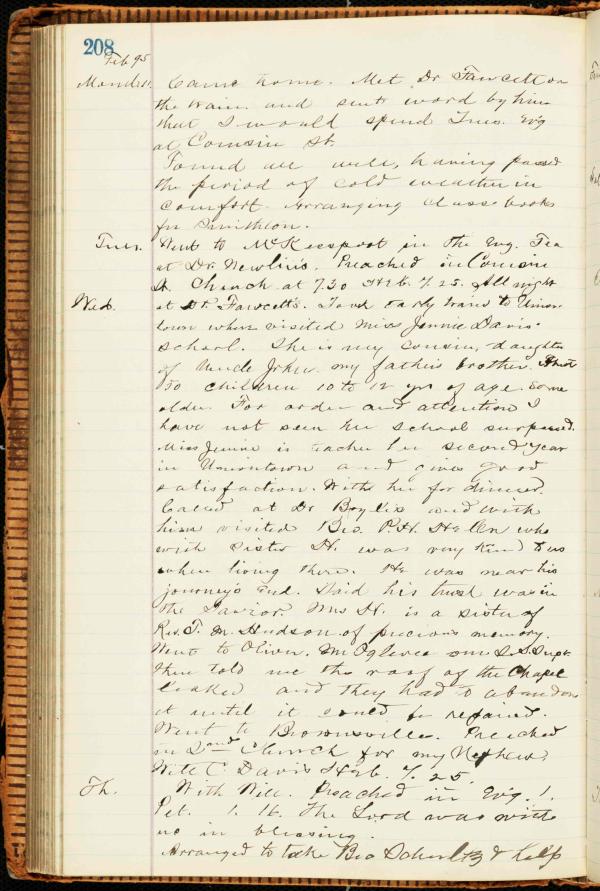 208
Feb 95
Mond. 11. Came home. Met Dr Fawcett on
the train and sent word by him
that I would spend Tues. Ev'g
at Cousin St.
Found all well, having passed
the period of cold weather in
comfort. Arranging class books
for
Tues. Went to McKeesport in the Evg. Tea
at Dr. Newlin's. Preached in Cousin
St. Church at 7.30 Heb. 7.25. All night
Wed. at Dr. Fawcett's. Took early train to Union-
town where visited Miss Jennie Davis'
school. She is my cousin, daughter
of Uncle John my father's brother. About
50 children 10 to 12 yrs of age. Some
older. For order and attention I
have not seen her school surpassed.
Miss Jennie is teacher her second year
in Uniontown and gives good
satisfaction. With her for dinner.
Called at Dr and with
him visited Bro. P.H. who
with Sister H. was very kind to us
when living there. He was near his
journey's end. Said his trust was in
the Savior. Mrs H. is a sister of
Rev. T. M. Hudson of precious memory.
Went to Oliver. Mr Oglevee our S.S. Supt.
there told me the roof of the Chapel
leaked and they had to abandon
it until it could be repaired.
Went to Brownsville. Preached
in 2nd Church for my Nephew
Will C. Davis Heb. 7. 25.
Th. With Will. Preached in Ev'g. 1.
Pet. 1. 16. The Lord was with
us in blessing.
Arranged to take Bro Schultz & help